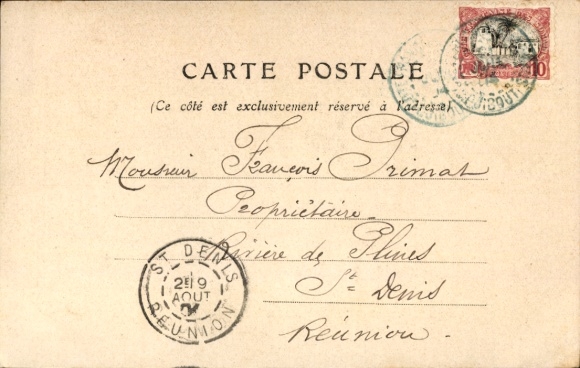 CARTE POSTALE
(Ce côté est exclusivement réservé à l'adresse)
Monsieur François Primat
Propriétaire
Rivière de Pluies
St Denis
Réunion.
10
ST DENIS
29
AOUT
04
RÉUNION